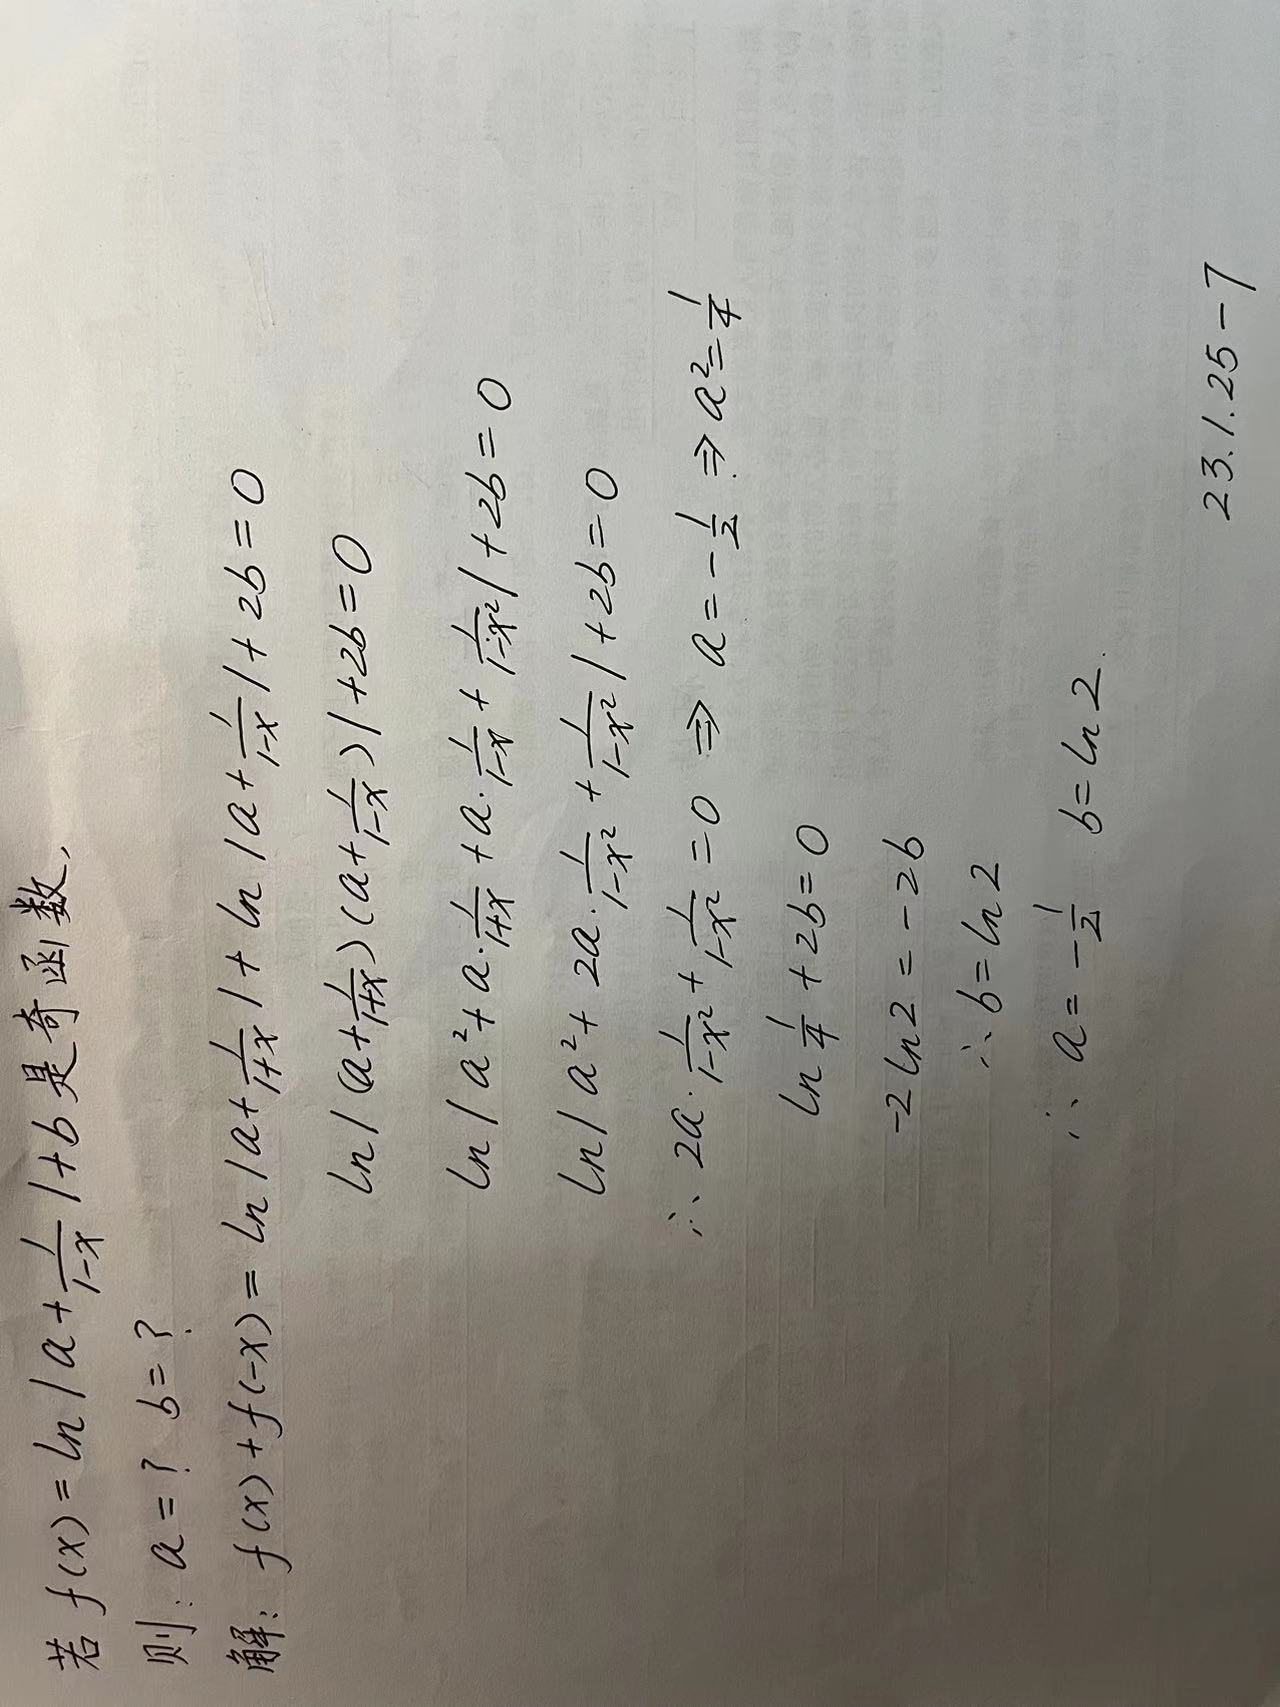 若 f(x) = ln|a+1/(1-x)|+b 是奇函数,
则: a = ? b = ?
解: f(x)+f(-x) = ln|a+1/(1+x)|+ln|a+1/(1-x)|+2b=0
ln|(a+1/(1+x))(a+1/(1-x))|+2b=0
ln|a²+a·1/(1+x)+a·1/(1-x)+1/(1-x²)|+2b=0
ln|a²+2a·1/(1-x²)+1/(1-x²)|+2b=0
∴ 2a·1/(1-x²)+1/(1-x²)=0 ⇒ a=-1/2 ⇒ a²=1/4
ln 1/4 +2b=0
-2ln2 = -2b
∴ b=ln2
∴ a=-1/2 b=ln2.
23.1.25-7